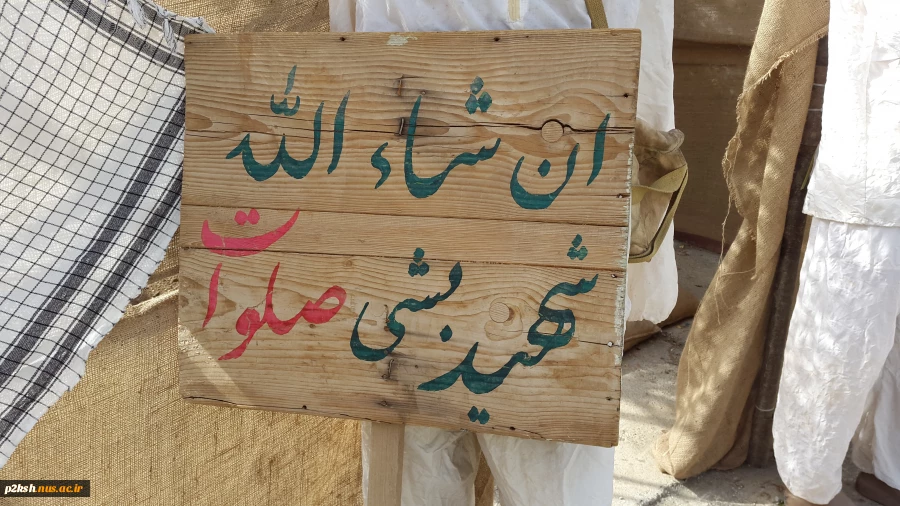 ان شاء الله
شهید بشی
صلوات
p2ksh.nus.ac.ir